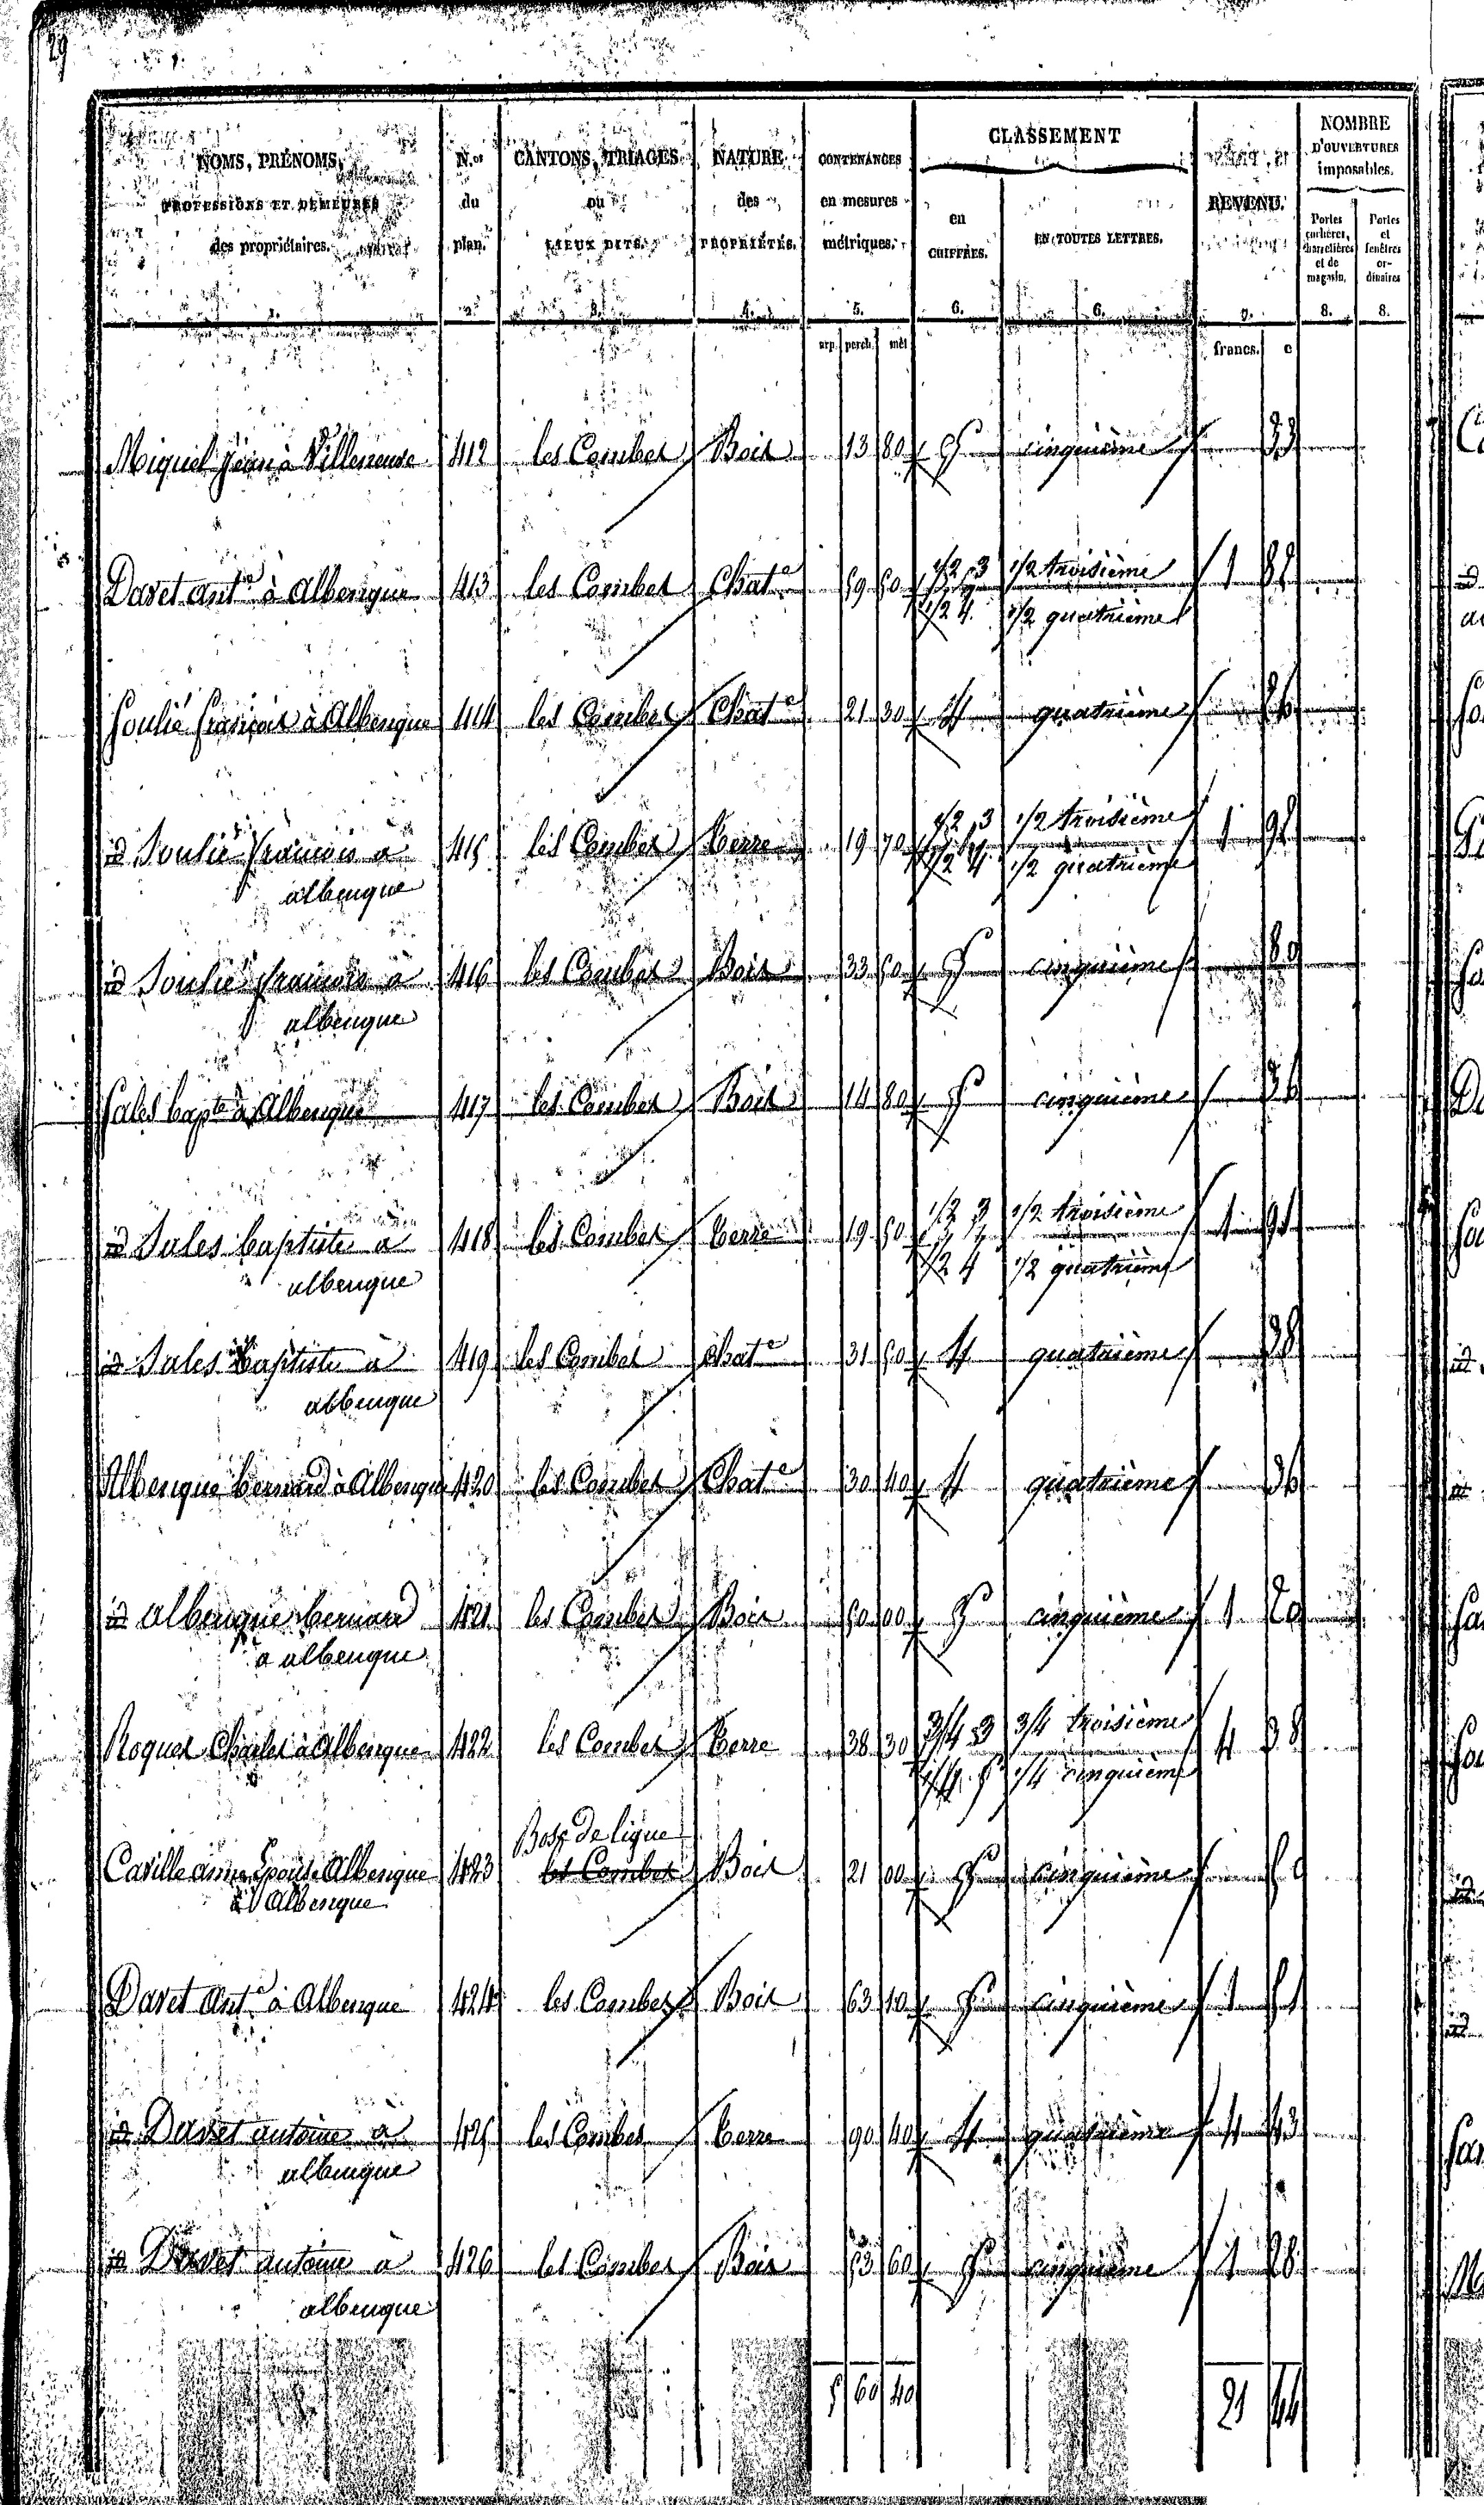 29
NOMS, PRÉNOMS, PROFESSIONS ET DEMEURES des propriétaires. 1.
N.os du plan. 2.
CANTONS, TRIAGES ou LIEUX DITS. 3.
NATURE des PROPRIÉTÉS. 4.
CONTENANCES en mesures métriques. 5.
CLASSEMENT
en CHIFFRES. 6.
EN TOUTES LETTRES. 6.
REVENU. 7.
NOMBRE D'OUVERTURES imposables.
Portes cochères, charretières et de magasin. 8.
Portes et fenêtres ordinaires 8.
arp. perch. mèt francs. c
Miquel Jean à Villeneuve 412 les Combes Bois 13 80 5 cinquième 33
Davet ant.e à Albenque 413 les Combes Chat.e 59 50 1/2 3 1/2 troisième 1
1/2 4 1/2 quatrième
Soulié françois à Albenque 414 les Combes Chat.e 21 30 4 quatrième
id Soulié françois a 415 les Combes Terre 19 70 1/2 3 1/2 troisième 1
albenque 1/2 4 1/2 quatrième
id Soulié françois a 416 les Combes Bois 33 50 5 cinquième 80
albenque
Sales bap.te à Albenque 417 les Combes Bois 14 80 5 cinquième 36
id Sales baptiste a 418 les Combes Terre 19 50 1/2 3 1/2 troisième 1
albenque 1/2 4 1/2 quatrième
id Sales baptiste à 419 les Combes Chat.e 31 50 4 quatrième 38
albenque
Albenque bernard à Albenque 420 les Combes Chat.e 30 40 4 quatrième 36
id albenque bernard 421 les Combes Bois 50 00 5 cinquième 1 20
à albenque
Roques Charles à Albenque 422 les Combes Terre 38 30 3/4 3 3/4 troisième 4 38
1/4 5 1/4 cinquième
Bosc de ligue
Caville anne Epouse Albenque 423 les Combes Bois 21 00 5 cinquième 50
à Albenque
Davet Ant.e à Albenque 424 les Combes Bois 63 10 5 cinquième 1 51
id Davet antoine a 425 les Combes Terre 90 40 4 quatrième 4 43
albenque
id Davet antoine a 426 les Combes Bois 53 60 5 cinquième 1 28
albenque
5 60 40 21 44